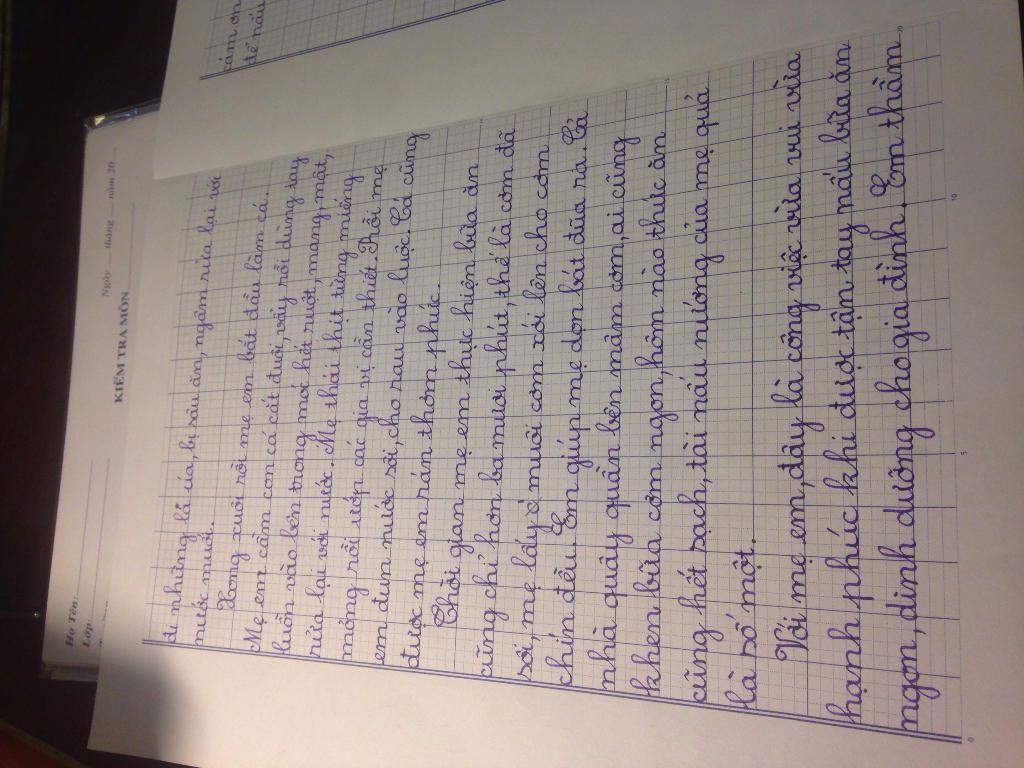 Họ Tên:
Lớp:
Ngày ... tháng ... năm 20
KIỂM TRA MÔN
đi những lá úa, bị sâu ăn, ngâm rửa lại với
nước muối.
Xong xuôi rồi mẹ em bắt đầu làm cá.
Mẹ em cầm con cá cắt đuôi, vẩy rồi dùng tay
luồn vào bên trong moi hết ruột, mang, mắt,
rửa lại với nước. Mẹ thái thịt từng miếng
mỏng rồi ướp các gia vị cần thiết. Rồi mẹ
em đun nước sôi, cho rau vào luộc. Cá cũng
được mẹ em rán thơm phức.
Thời gian mẹ em thực hiện bữa ăn
cũng chỉ hơn ba mươi phút, thế là cơm đã
sôi, mẹ lấy muôi cơm xới lên cho cơm
chín đều. Em giúp mẹ dọn bát đũa ra. Cả
nhà quây quần bên mâm cơm, ai cũng
khen bữa cơm ngon, hôm nào thức ăn
cũng hết sạch, tài nấu nướng của mẹ quả
là số một.
Với mẹ em, đây là công việc vừa vui vừa
hạnh phúc khi được tận tay nấu bữa ăn
ngon, dinh dưỡng cho gia đình. Em thầm
0
5
10
20
cảm ơn
để nấu